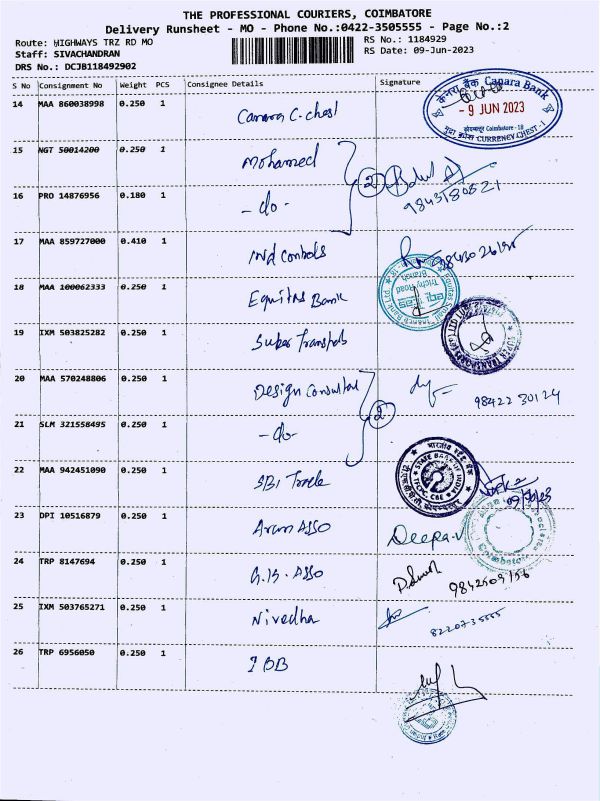 THE PROFESSIONAL COURIERS, COIMBATORE
Delivery Runsheet - MO - Phone No.:0422-3505555 - Page No.:2
Route: HIGHWAYS TRZ RD MO
RS No.: 1184929
Staff: SIVACHANDRAN
RS Date: 09-Jun-2023
DRS No.: DCJB118492902
S No Consignment No Weight PCS Consignee Details Signature
14 MAA 860038998 0.250 1 Canara C. chest
केनरा बैंक Canara Bank
- 9 JUN 2023
कोयम्बत्तूर Coimbatore - 18
मुद्रा कोष CURRENCY CHEST - I
15 NGT 50014200 0.250 1 Mohamed
16 PRO 14876956 0.180 1 - do -
2
9843180521
17 MAA 859727000 0.410 1 Ind Controls
18 MAA 100062333 0.250 1 Equitas Bank
Equitas Small Finance Bank Ltd
Trichy Road
Branch
19 IXM 503825282 0.250 1 Super Transports
SUPER TRANSPORTS (P) LTD
20 MAA 570248806 0.250 1 Design Consultant
98422 30124
21 SLM 321558495 0.250 1 - do -
2
22 MAA 942451090 0.250 1 SBI Trade
भारतीय स्टेट बैंक
STATE BANK OF INDIA
CBE
23 DPI 10516879 0.250 1 Arun ASSO
Deepa.V
Coimbatore
24 TRP 8147694 0.250 1 G.B. ASSO
25 IXM 503765271 0.250 1 Nivedha
8220735555
26 TRP 6956050 0.250 1 IOB